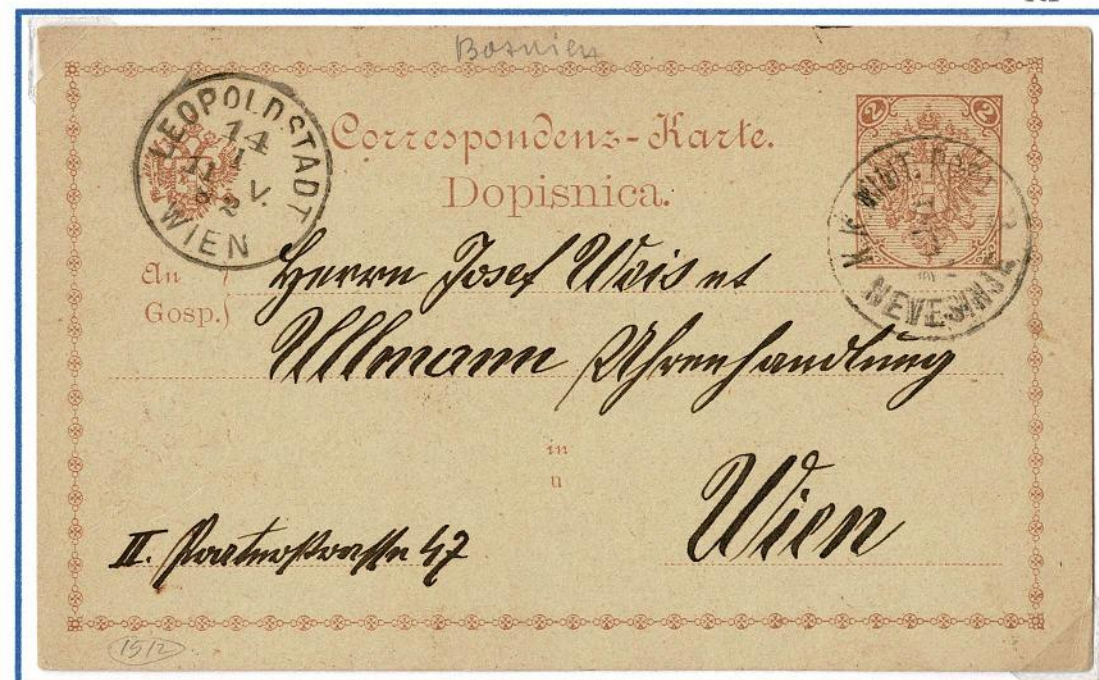 Bosnien
LEOPOLDSTADT
14
1
11
V.
WIEN
Correspondenz-Karte.
Dopisnica.
2 2
K. K. MILIT. POST
NEVESINJE
An
Gosp.
Herrn Josef Weis et
Ullmann Uhrenhandlung
in
u
Wien
II. Praterstrasse 47
1512